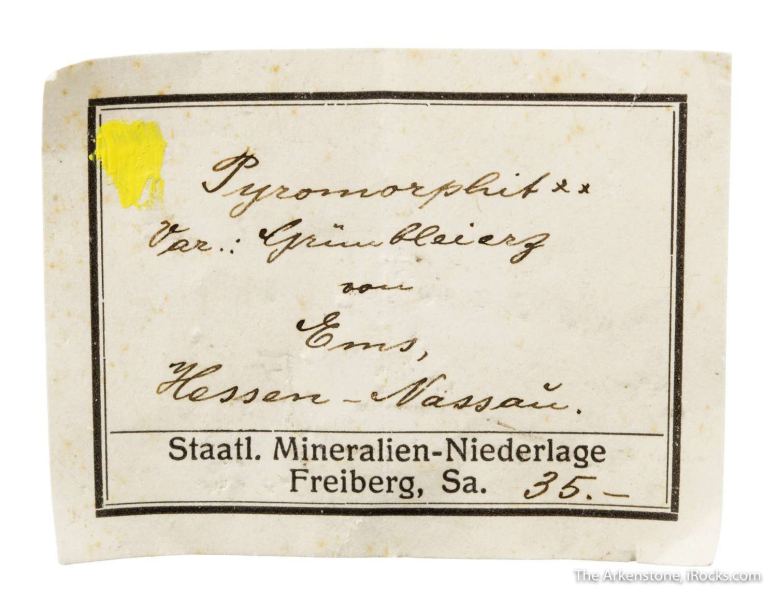 Pyromorphit xx
Var.: Grünbleierz
von
Ems,
Hessen-Nassau.
Staatl. Mineralien-Niederlage
Freiberg, Sa. 35.-
The Arkenstone, iRocks.com